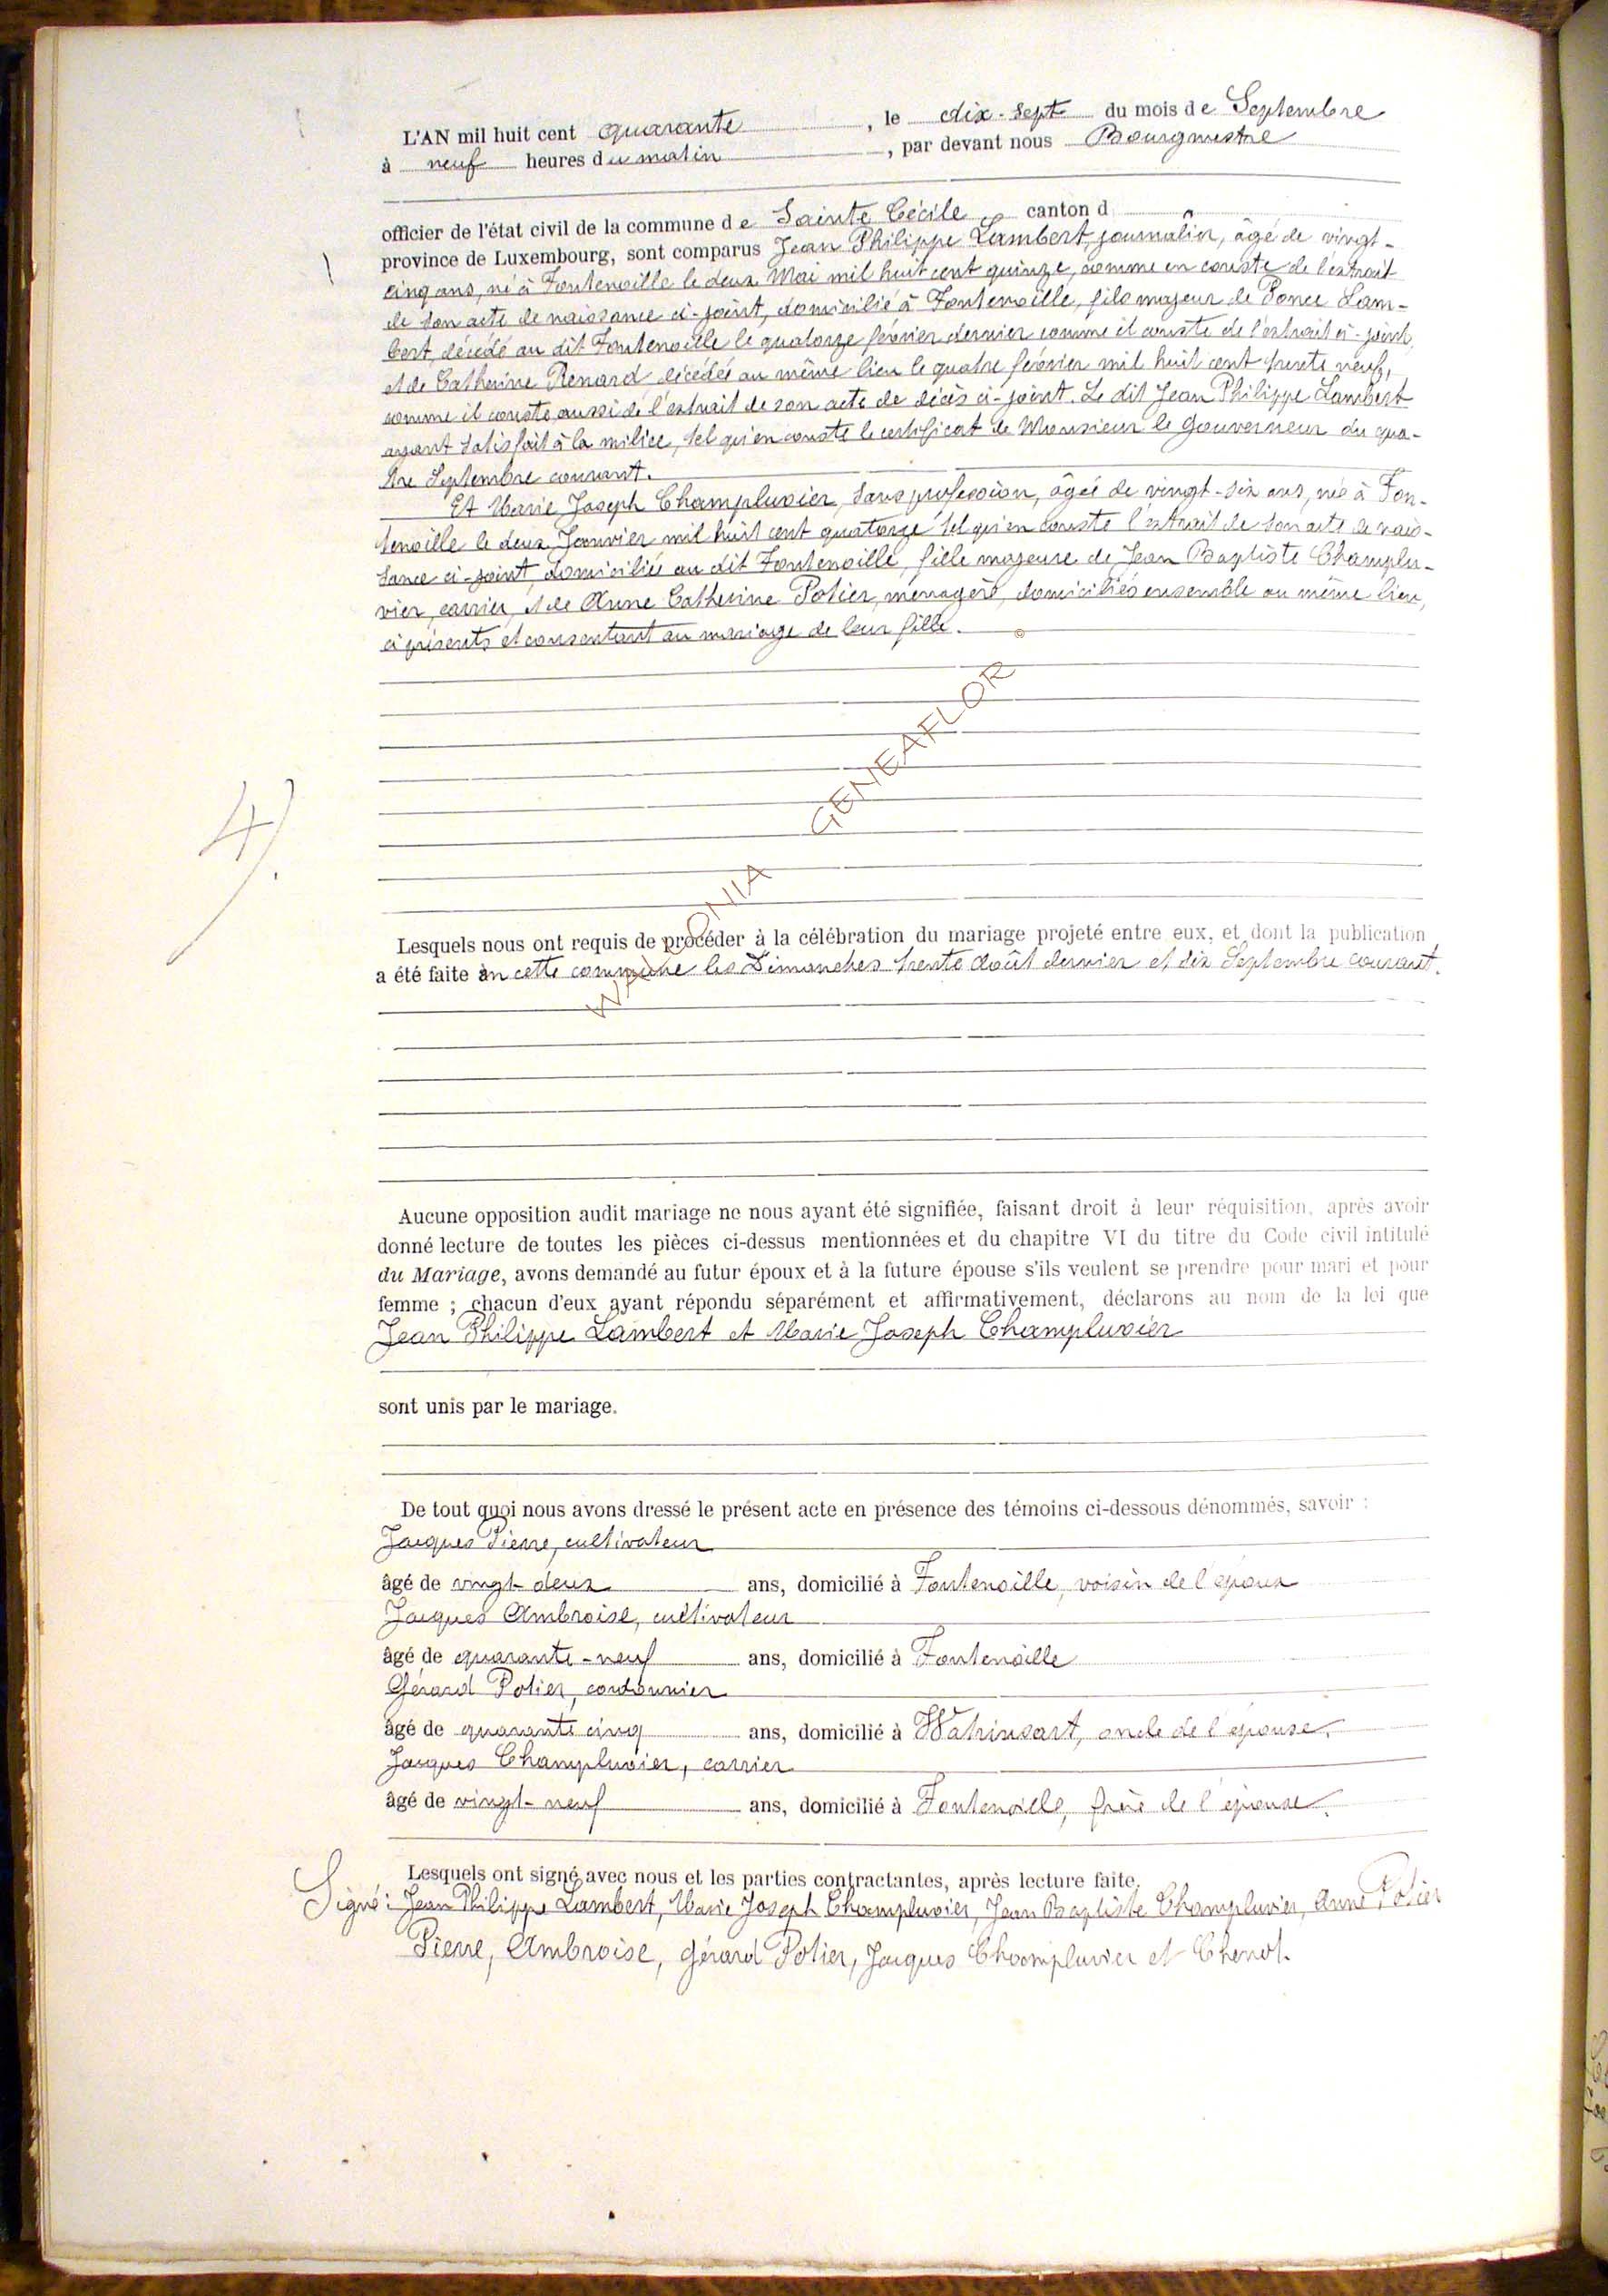 L'AN mil huit cent quarante, le dix-sept du mois de Septembre
à neuf heures du matin, par devant nous Bourgmestre
officier de l'état civil de la commune de Sainte Cécile canton d
province de Luxembourg, sont comparus Jean Philippe Lambert, journalier, âgé de vingt-
cinq ans, né à Fontenoille le deux Mai mil huit cent quinze, comme en conste de l'extrait
de son acte de naissance ci-joint, domicilié à Fontenoille, fils majeur de Ponce Lam-
bert, décédé au dit Fontenoille le quatorze février dernier comme il conste de l'extrait ci-joint,
et de Catherine Renard décédée au même lieu le quatre février mil huit cent trente neuf,
comme il conste aussi de l'extrait de son acte de décès ci-joint. Le dit Jean Philippe Lambert
ayant satisfait à la milice, tel qu'en conste le certificat de Monsieur le Gouverneur du qua-
tre Septembre courant.
Et Marie Joseph Champluvier, sans profession, âgée de vingt-six ans, née à Fon-
tenoille le deux Janvier mil huit cent quatorze tel qu'en conste l'extrait de son acte de nais-
sance ci-joint, domiciliée au dit Fontenoille, fille majeure de Jean Baptiste Champlu-
vier, carrier, et de Anne Catherine Potier, ménagère, domiciliés ensemble au même lieu,
ci présents et consentant au mariage de leur fille.
©
WALLONIA GENEAFLOR
4).
Lesquels nous ont requis de procéder à la célébration du mariage projeté entre eux, et dont la publication
a été faite en cette commune les Dimanches trente août dernier et six Septembre courant.
Aucune opposition audit mariage ne nous ayant été signifiée, faisant droit à leur réquisition, après avoir
donné lecture de toutes les pièces ci-dessus mentionnées et du chapitre VI du titre du Code civil intitulé
du Mariage, avons demandé au futur époux et à la future épouse s'ils veulent se prendre pour mari et pour
femme ; chacun d'eux ayant répondu séparément et affirmativement, déclarons au nom de la loi que
Jean Philippe Lambert et Marie Joseph Champluvier
sont unis par le mariage.
De tout quoi nous avons dressé le présent acte en présence des témoins ci-dessous dénommés, savoir :
Jacques Pierre, cultivateur
âgé de vingt-deux ans, domicilié à Fontenoille, voisin de l'époux
Jacques Ambroise, cultivateur
âgé de quarante-neuf ans, domicilié à Fontenoille
Gérard Potier, cordonnier
âgé de quarante cinq ans, domicilié à Watrinsart, oncle de l'épouse.
Jacques Champluvier, carrier
âgé de vingt-neuf ans, domicilié à Fontenoille, frère de l'épouse.
Lesquels ont signé avec nous et les parties contractantes, après lecture faite.
Signé : Jean Philippe Lambert, Marie Joseph Champluvier, Jean Baptiste Champluvier, Anne Potier
Pierre, Ambroise, Gérard Potier, Jacques Champluvier et Chenot.